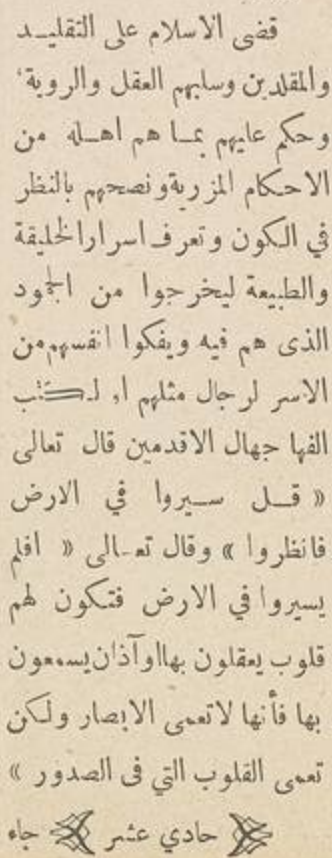 قضى الاسلام على التقليد
والمقلدين وسلبهم العقل والروية،
وحكم عليهم بما هم اهله من
الاحكام المزرية ونصحهم بالنظر
في الكون وتعرف اسرار الخليقة
والطبيعة ليخرجوا من الجمود
الذى هم فيه ويفكوا انفسهم من
الاسر لرجال مثلهم او لكتب
الفها جهال الاقدمين قال تعالى
« قل سيروا في الارض
فانظروا » وقال تعالى « افلم
يسيروا في الارض فتكون لهم
قلوب يعقلون بها او آذان يسمعون
بها فأنها لاتعمى الابصار ولكن
تعمى القلوب التي فى الصدور »
حادي عشر جاء